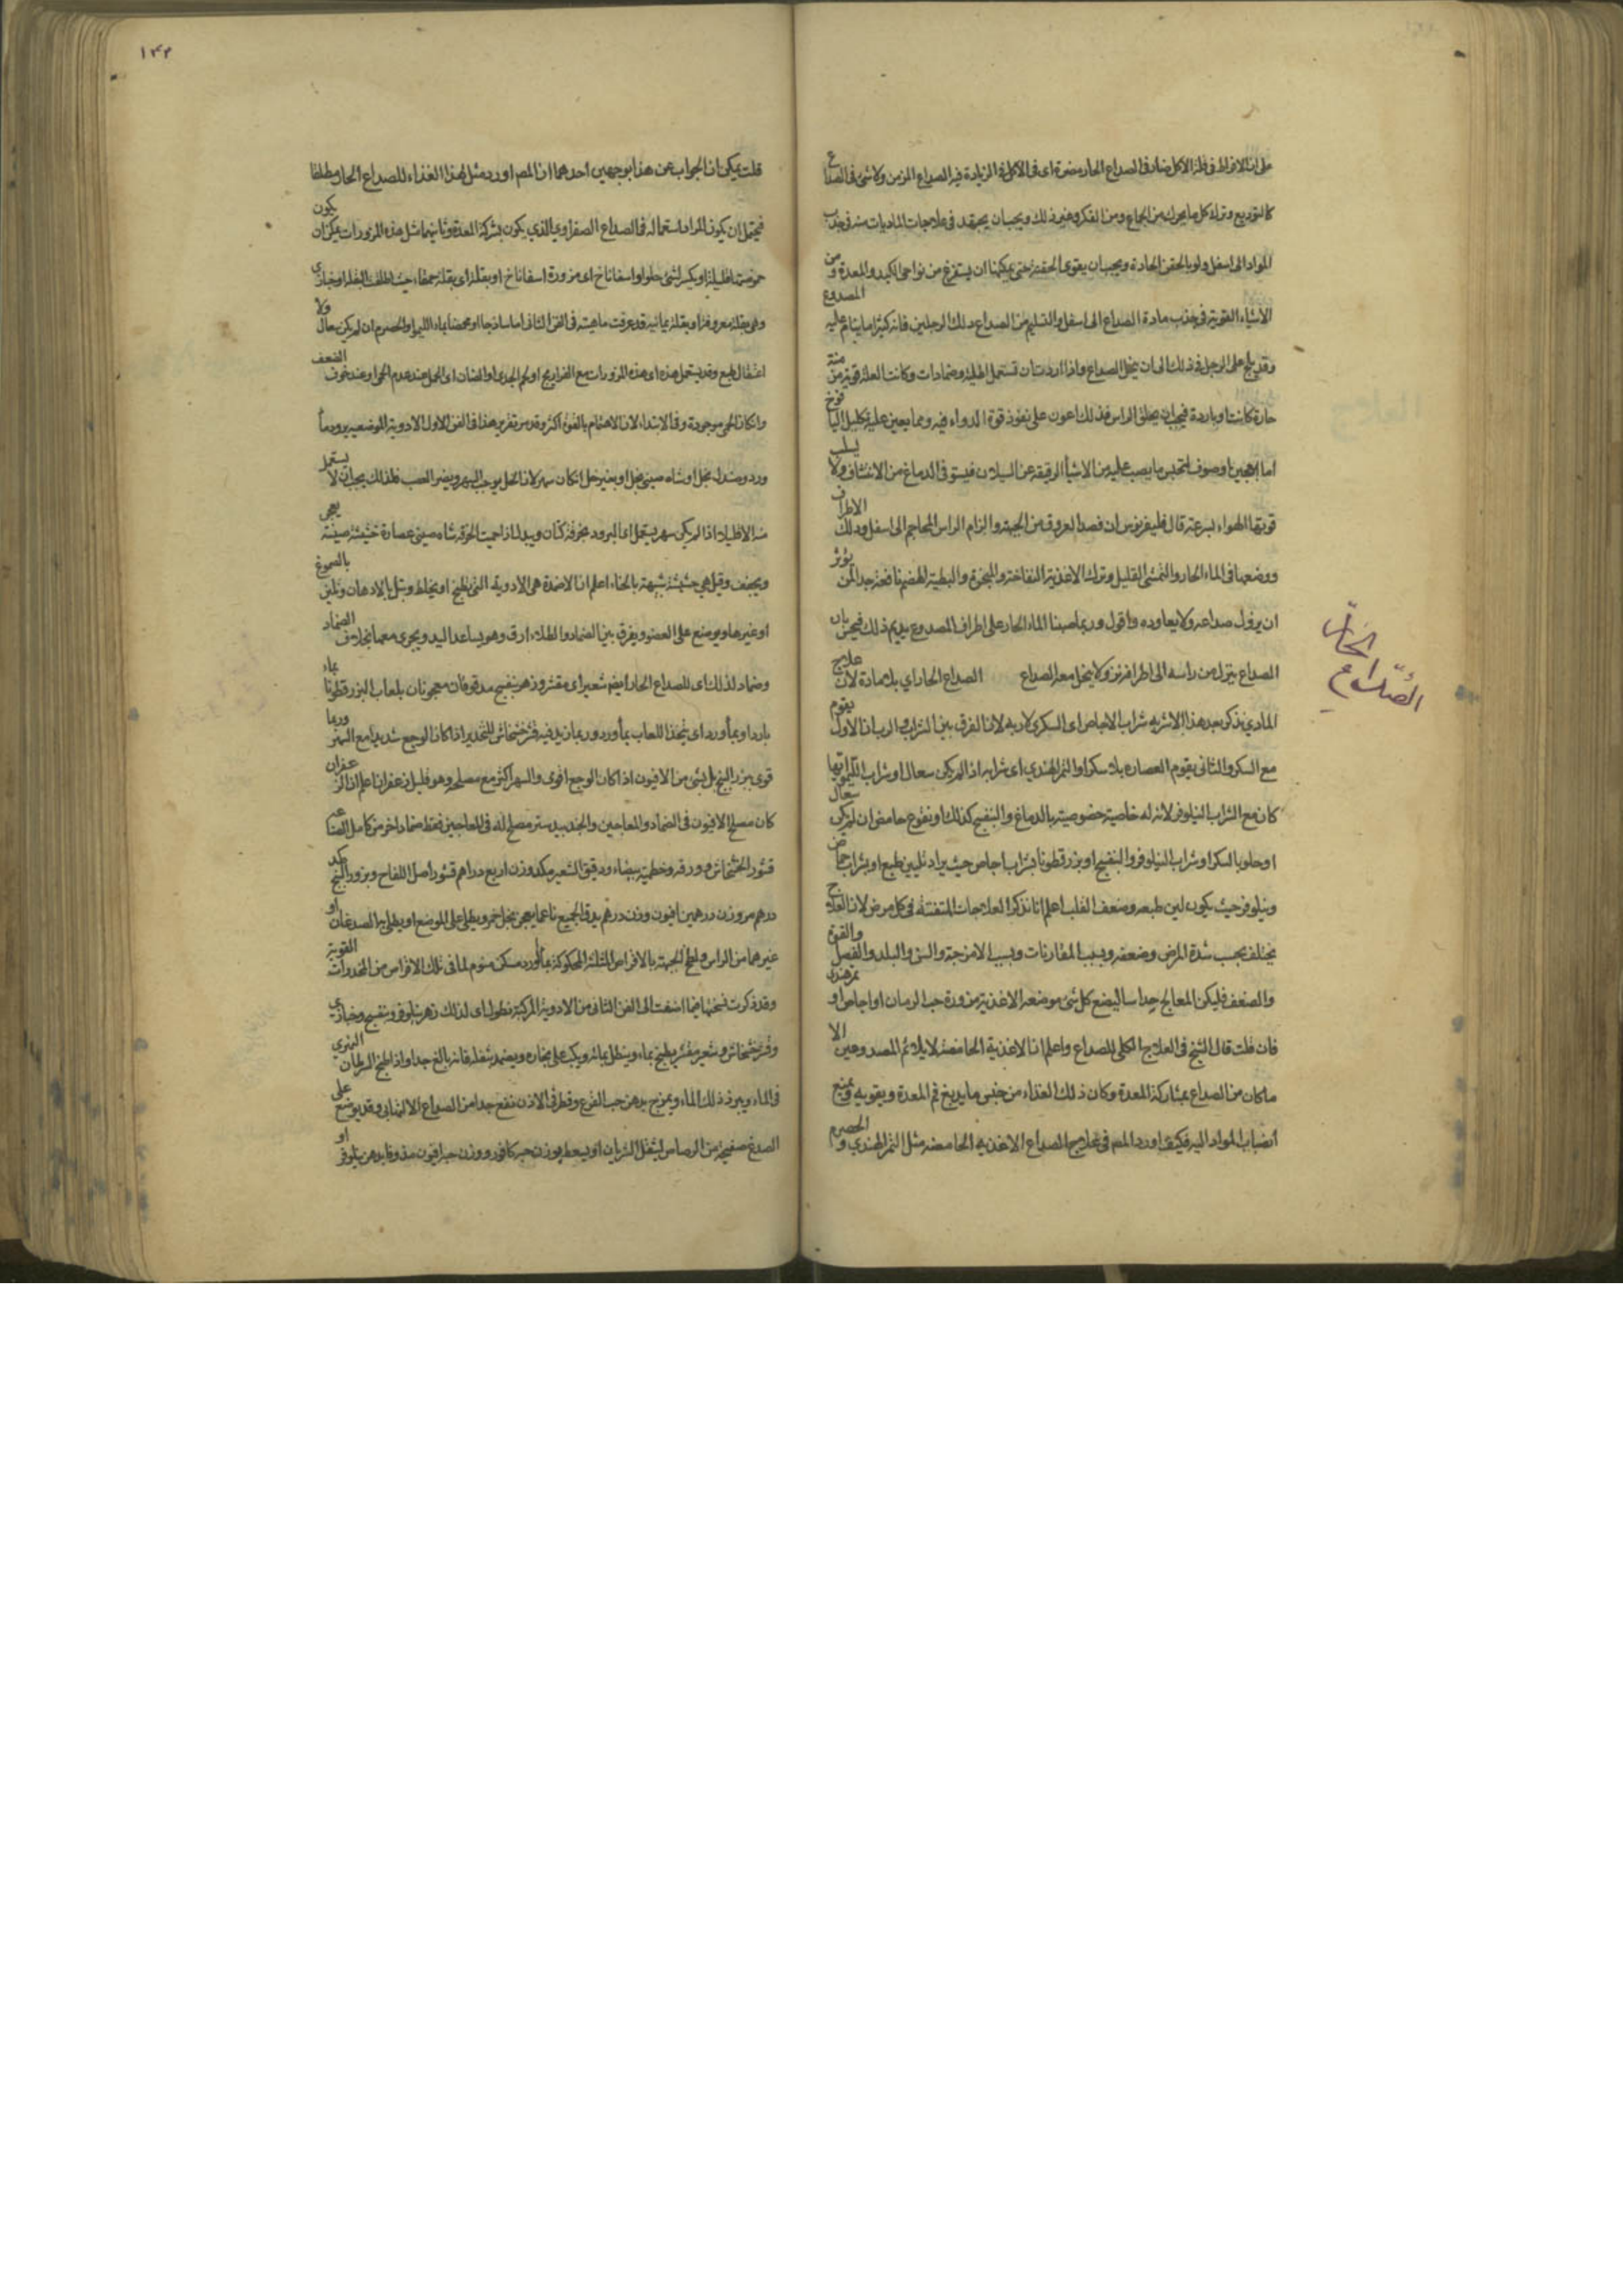 على ان الافراط فى قلة الاكل ضار فى الصداع الحار مضرة اى فى الاكل فى الزيادة فيه الصداع المزمن ولا شئ فى الصداع
كالتوديع وترك كل ما يحرك من الجماع ومن الفكر وغير ذلك ويجب ان يجتهد فى علاجات الماديات منه فى جذب
المواد الى اسفل ولو بالحقن الحادة ويجب ان يقوى الحقنة حتى يمكنها ان يستفرغ من نواحى الكبد والمعدة ومن
الاشياء القوية فى جذب مادة الصداع الى اسفل والتسليم من الصداع دلك الرجلين فانه كثيرا ما ينام عليه المصدوع
وقد يلح على الرجل فى ذلك الى ان يحل الصداع واذا اردت ان تستعمل اطلية وضمادات وكانت العلة قوية مزمنة
حارة كانت او باردة فيجب ان يحلق الراس فذلك اعون على نفوذ قوة الدواء فيه ومما يعين عليه تكليل اليافوخ
اما بعجين او صوف لتحبس ما يصب عليه من الاشياء الرقيقة عن السيلان فيستوفى الدماغ من الانتشاف ولا يسلب
قوتها الهواء بسرعة قال فليغريوس ان فصد العروق من الجبهة والزام الراس المحاجم الى اسفل ودلك الاطراف
ووضعها فى الماء الحار والتمشى القليل وترك الاغذية النفاخة والمبخرة والبطيئة الهضم نافعة جدا لمن يؤثر
ان يزول صداعه ولا يعاوده واقول وربما صببنا الماء الحار على اطراف المصدوع يديم ذلك فيحس بان
الصداع ينزل من راسه الى اطرافه نزولا ينحل معه الصداع الصداع الحار اى بلا مادة لان علاج
المادى يذكر بعد هذا الاشربه شراب الاجاص اى السكرى لا ربه لان الفرق بين الشراب والرب ان الاول يقوم
مع السكر والثانى يقوم العصاره بلا سكر او التمر الهندي اى شرابه اذا لم يكن سعال او شراب الليمو ايها
كان مع الشراب النيلوفر لانه له خاصية خصوصية بالدماغ والبنفسج كذلك او نقوع حامض ان لم يكن سعال
او حلو بالسكر او شراب النيلوفر والبنفسج او بزر قطونا بشراب اجاص حيث يراد تليين طبع او بشراب حماض
ونيلوفر حيث يكون لين طبعه وضعف القلب اعلم انا نذكر العلاجات المتفننة فى كل مرض لان العلاج
يختلف بحسب شدة المرض وضعفه وبسبب المقارنات وبسبب الامزجة والسن والبلد والفصل والقوة
والضعف فليكن المعالج حداسا ليضع كل شئ موضعه الاغذية مزورة حب الرمان او اجاص او تمرهندى
فان قلت قال الشيخ فى العلاج الكلى للصداع واعلم ان الاغذية الحامضة لا يلائم المصدوعين الا
ما كان من الصداع بمشاركة المعدة وكان ذلك الغذاء من جنس ما يدبغ فم المعدة ويقويه ويمنع
انصباب المواد اليه فكيف اورد المص فى علاج الصداع الاغذيه الحامضه مثل التمر الهندي والحصرم
الصداع الحار
١٤٣
قلت يمكن ان الجواب عن هذا بوجهين احدهما ان المص اورد مثل هذا الغذاء للصداع الحار مطلقا
فيحتمل ان يكون المراد استعماله فى الصداع الصفراوي الذي يكون بشركة المعدة وثانيهما مثل هذه المزورات يمكن ان يكون
حموضتها قليلة او يكسر لشئ حلو او اسفاناخ اى مزورة اسفاناخ او بقلة اى بقلة حمقاء حيث اطلقت البقلة او خبازى
وهى بقلة معروفة او بقلة يمانيه قد عرفت ماهيته فى الفن الثانى اما ساذجا او محمضا بماء الليمو او الحصرم ان لم يكن سعال ولا
اعتقال طبع وقد يستعمل هذه اى هذه المزورات مع الفراريج او لحم الجدى او الضان اى الحمل عند عدم الحمى او عند خوف الضعف
وان كان الحمى موجودة وفى الابتداء لان الاهتمام بالقوة اكثر وقد مر تقرير هذا فى الفن الاول الادوية الموضعيه برود ماء
ورد وصندل بخل او شاه صينى بخل او بغير خل ان كان سهر لان الخل يوجب السهر ويضر العصب فلذلك يجب ان لا يستعمل
منه الاقليلا اذا لم يكن سهر يستعمل اى البرود بخرقة كتان ويبدل اذا حميت الخرقه شاه صينى عصارة حشيشة صينية يجئ
ويجفف وقيل هى حشيشة شبيهة بالحناء اعلم ان الاضمدة هى الادوية التى تطبخ او يخلط وتبل بالادهان وتلين بالصموغ
او غيرها ويوضع على العضو ويفرق بين الضماد والطلاء ارق وهو يساعد اليد ويجرى معها بخلاف الضماد
وضماد لذلك اى للصداع الحار ايضم شعير اى مقشر وزهر بنفسج مدقوقان معجونان بلعاب البزر قطونا بماء
بارد او بماء ورد اى يتخذ اللعاب بماء ورد وربما يزيد فيه قشر خشخاش للتخدير اذا كان الوجع شديدا مع السهر وربما
قوى ببزر البنج بل بشئ من الافيون اذا كان الوجع اقوى والسهر اكثر مع مصلحه وهو قليل زعفران اعلم ان الزعفران
كان مصلح الافيون فى الضماد والمعاجين والجندبيدستر مصلح له فى المعاجين فقط ضماد اخر من كامل الصناعة
قشور الخشخاش وورقه وخطمية بيضاء ودقيق الشعير مكد وزن اربع دراهم قشور اصل اللفاح وبزور البنج مكد
درهم مر وزن درهمين افيون وزن درهم يدق الجميع ناعما يعجن بخل خمر ويطلى على الموضع او يطلى به الصدغان او
غيرهما من الراس ولطخ الجبهة بالاقراص المثلثة المحكوكة بماء ورد مسكن منوم لما فى تلك الاقراص من المخدرات القوية
وقد ذكرت نسختها فيما اضفت الى الفن الثانى من الادوية المركبة نطول اى لذلك زهر نيلوفر وبنفسج وخبازى
وقشر خشخاش وشعير مقشر يطبخ بماء وينطل بمائه ويكب على بخاره ويضمد بثفله فانه بالغ جدا واذا طبخ السرطان النهري
فى الماء ويبرد ذلك الماء ويمزج بدهن حب القرع وقطر فى الاذن نفع جدا من الصداع الالتهابى وقد يوضع على
الصدغ صفيحة من الرصاص ليثقل الشريان او يسعط بوزن حبه كافور ووزن حبه افيون مذوفا بدهن نيلوفر او